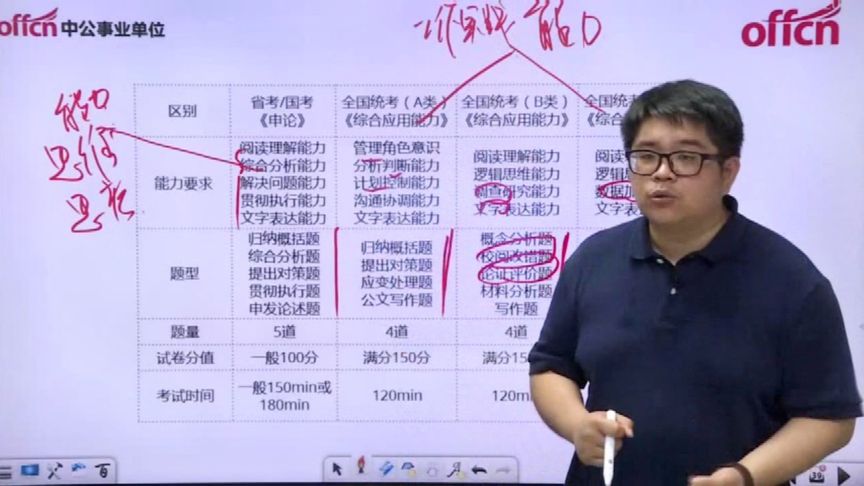 offcn 中公事业单位
offcn
能力
能力
思维
区别
省考/国考
《申论》
全国统考（A类）
《综合应用能力》
全国统考（B类）
《综合应用能力》
全国统考
《综合
能力要求
阅读理解能力
综合分析能力
解决问题能力
贯彻执行能力
文字表达能力
管理角色意识
分析判断能力
计划控制能力
沟通协调能力
文字表达能力
阅读理解能力
逻辑思维能力
调查研究能力
文字表达能力
阅读
逻辑
数据加
文字
题型
归纳概括题
综合分析题
提出对策题
贯彻执行题
申发论述题
归纳概括题
提出对策题
应变处理题
公文写作题
概念分析题
校阅改错题
论证评价题
材料分析题
写作题
题量
5道
4道
4道
试卷分值
一般100分
满分150分
满分15
考试时间
一般150min或
180min
120min
120m
39